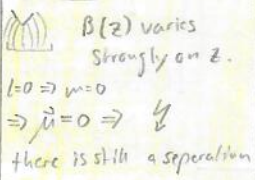 B(z) varies
strongly on z.
l=0 => m=0
=> μ⃗=0 => ↯
there is still a seperation